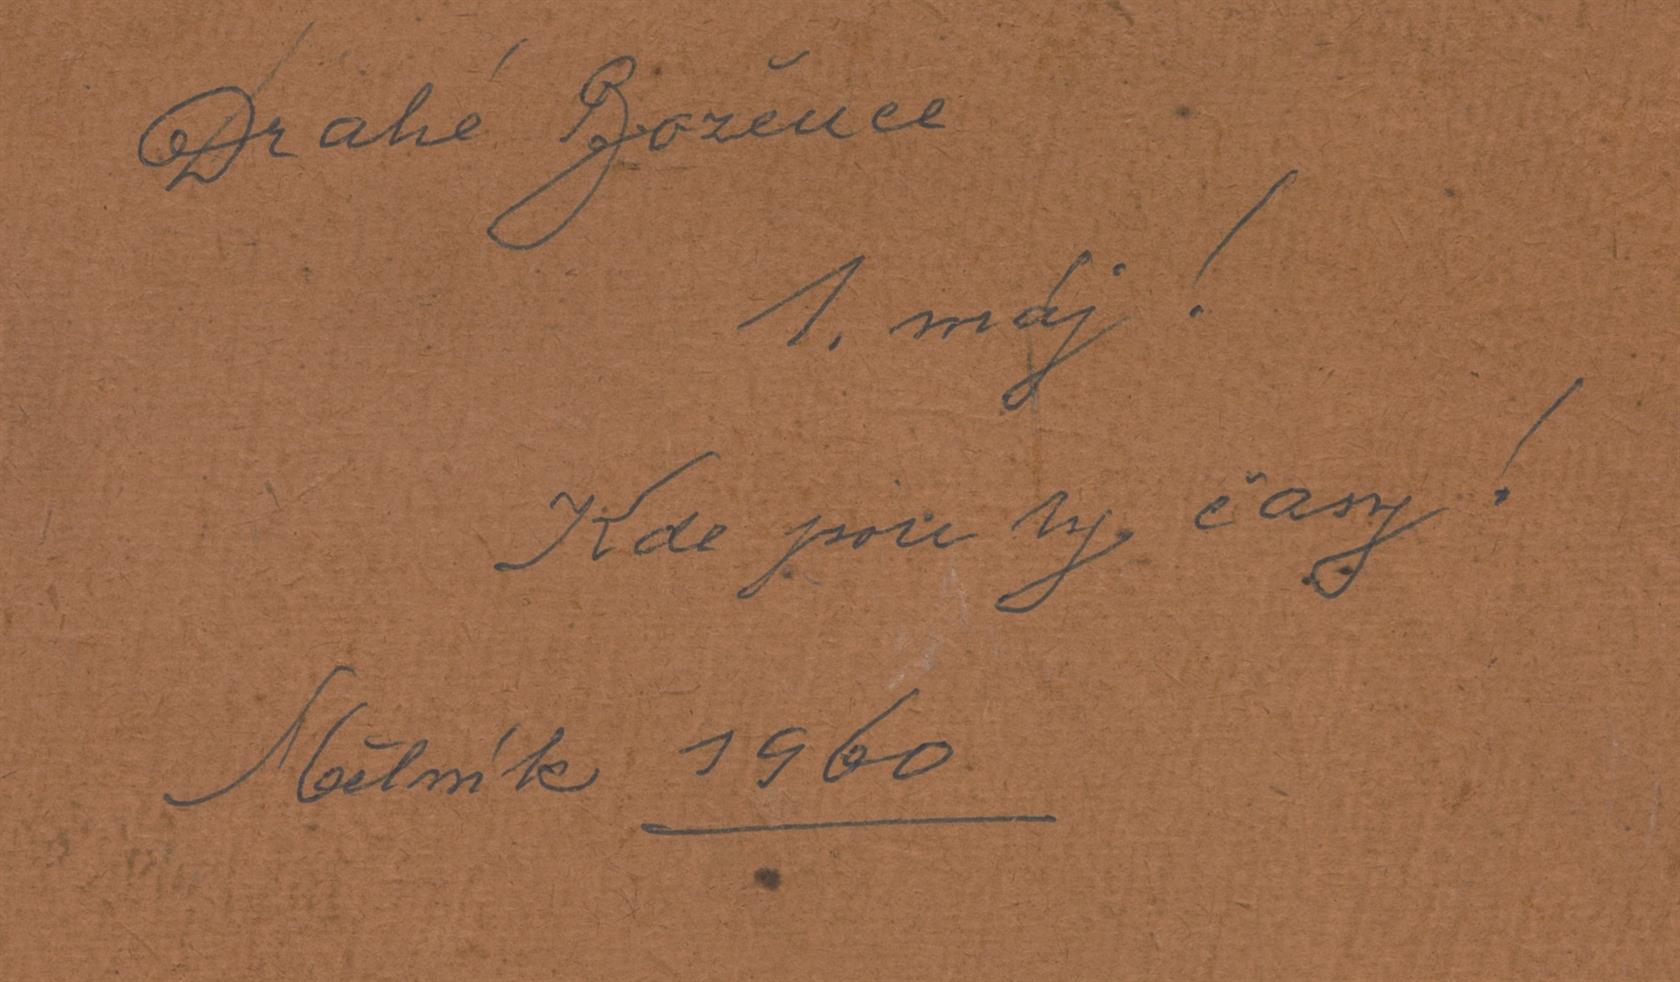 Drahé Bozěnce
1. máj!
Kde jsou ty časy!
Mělník 1960